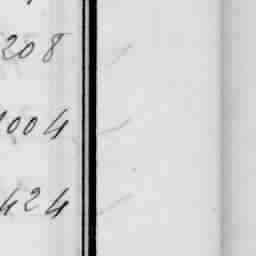 208
1004
424